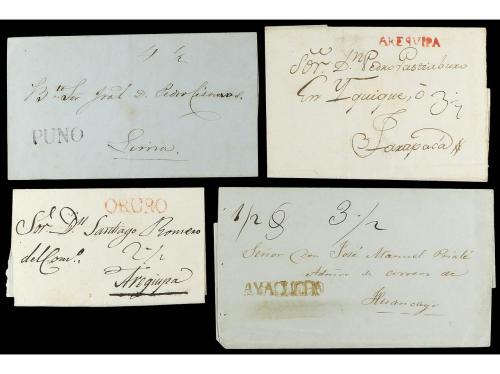 4 ½
Sor Gral D. Pedro Cisneros.
PUNO
Lima.
AREQUIPA
Sor. Dn Pedro
En Yquique, ò 3½
Tarapacá
ORURO
Sor. Dn Santiago Romero
del Como. 2½
Arequipa
1/2 3½
Señor don José Manuel
Admor de correos de
AYACUCHO
Huancayo